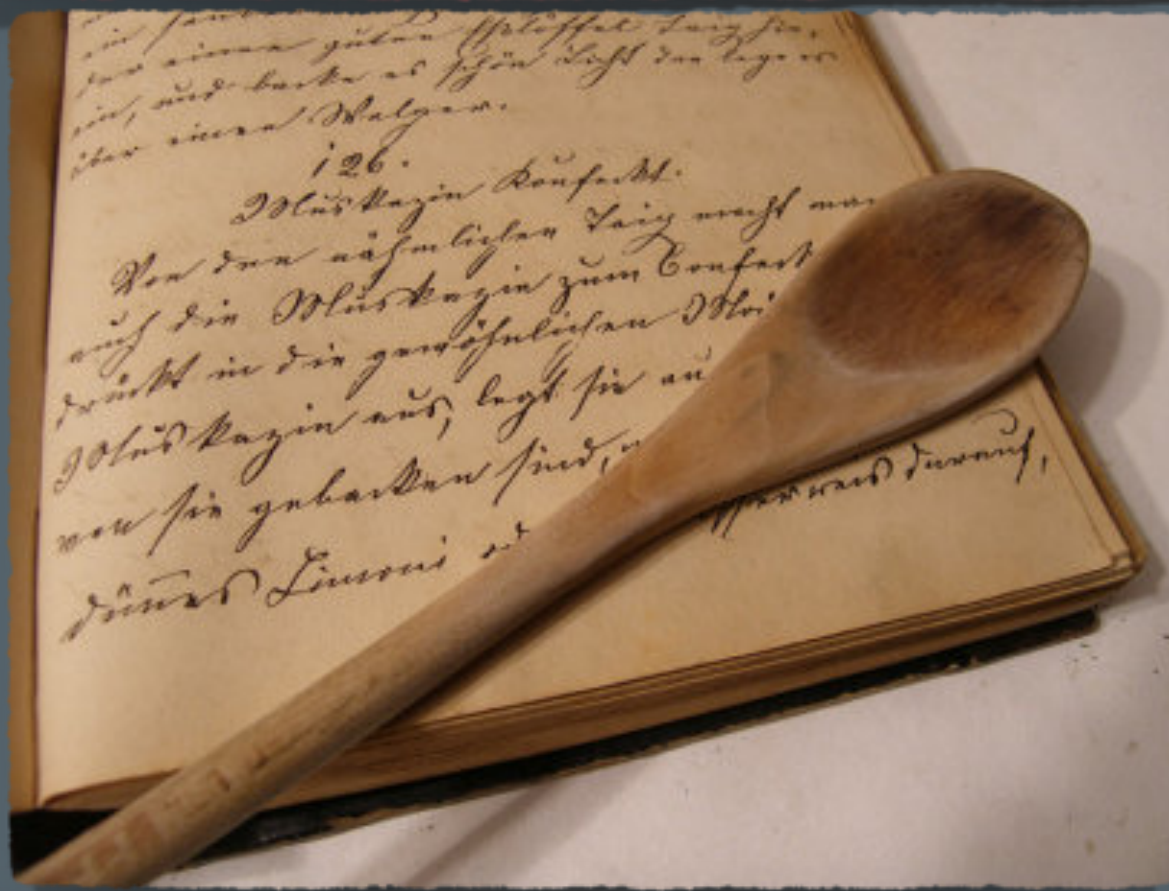 in
der einen guten Esslöffel Taig hin,
ein, und backe es schön licht dan lege es
über einen Walger.
126.
Muskazin Konfeckt.
Von den nähmlichen Taig macht man
auch die Muskazin zum Confect
drückt in die gewöhnlichen
Muskazin aus, legt sie
wen sie gebacken sind,
dünnes Limoni darauf,